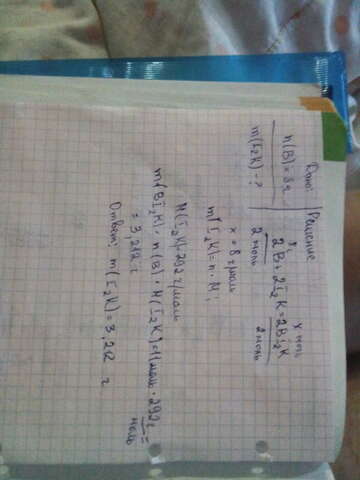 Дано:
n(B) = 8 г
m(I₂K) - ?
Решение
x моль
2B + 2I₂K = 2BI₂K
2 моль 2 моль
x = 8 г/моль
m(I₂K) = n · M;
M(I₂K) = 292 г/моль
m(BI₂K) = n(B) · M(I₂K) = 11 моль · 292 г/моль =
= 3,212 г
Ответ: m(I₂K) = 3,212 г